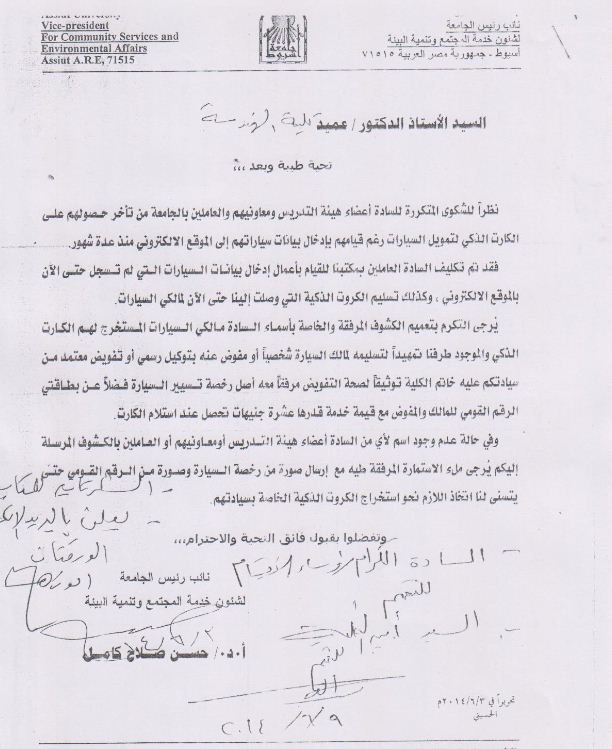 Assiut University
Vice-president
For Community Services and
Environmental Affairs
Assiut A.R.E, 71515
جامعة أسيوط
نائب رئيس الجامعة
لشئون خدمة المجتمع وتنمية البيئة
أسيوط - جمهورية مصر العربية ٧١٥١٥
السيد الأستاذ الدكتور / عميد كلية الهندسة
تحية طيبة وبعد ,,,
نظراً للشكوى المتكررة للسادة أعضاء هيئة التدريس ومعاونيهم والعاملين بالجامعة من تأخر حصولهم على
الكارت الذكي لتمويل السيارات رغم قيامهم بإدخال بيانات سياراتهم إلى الموقع الالكتروني منذ عدة شهور.
فقد تم تكليف السادة العاملين بمكتبنا للقيام بأعمال إدخال بيانات السيارات التي لم تسجل حتى الآن
بالموقع الالكتروني ، وكذلك تسليم الكروت الذكية التي وصلت إلينا حتى الآن لمالكي السيارات.
يُرجى التكرم بتعميم الكشوف المرفقة والخاصة بأسماء السادة مالكي السيارات المستخرج لهم الكارت
الذكي والموجود طرفنا تمهيداً لتسليمه لمالك السيارة شخصياً أو مفوض عنه بتوكيل رسمي أو تفويض معتمد من
سيادتكم عليه خاتم الكلية توثيقاً لصحة التفويض مرفقاً معه أصل رخصة تسيير السيارة فضلاً عن بطاقتي
الرقم القومي للمالك والمفوض مع قيمة خدمة قدرها عشرة جنيهات تحصل عند استلام الكارت.
وفي حالة عدم وجود اسم لأي من السادة أعضاء هيئة التدريس أومعاونيهم أو العاملين بالكشوف المرسلة
إليكم يُرجى ملء الاستمارة المرفقة طيه مع إرسال صورة من رخصة السيارة وصورة من الرقم القومي حتى
يتسنى لنا اتخاذ اللازم نحو استخراج الكروت الذكية الخاصة بسيادتهم.
وتفضلوا بقبول فائق التحية والاحترام,,,
نائب رئيس الجامعة
لشئون خدمة المجتمع وتنمية البيئة
أ.د./ حسن صلاح كامل
- السادة الكرام رؤساء الأقسام
السيد أمين
٢٠١٤/٦/٩
تحريراً في ٢٠١٤/٦/٣م